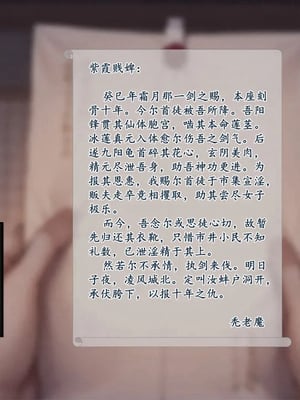 紫霞贱婢：
癸巳年霜月那一剑之赐，本座刻
骨十年。今尔首徒被吾所降。吾阳
锋贯其仙体胞宫，啮其本命莲茎。
冰莲真元入体愈尔伤吾之剑气。后
逐九阳龟首碎其花心，玄阴美肉，
精元尽泄吾身，助吾神功更进。为
报其恩惠，我赐尔首徒于市集宣淫，
贩夫走卒竞相攫取，助其尝尽女子
极乐。
而今，吾念尔或思徒心切，故暂
先归还其衣靴，只惜市井小民不知
礼数，已泄淫精于其上。
然若尔不承情，执剑来伐。明日
子夜，凌风城北。定叫汝蚌户洞开，
承伏胯下，以报十年之仇。
秃老魔